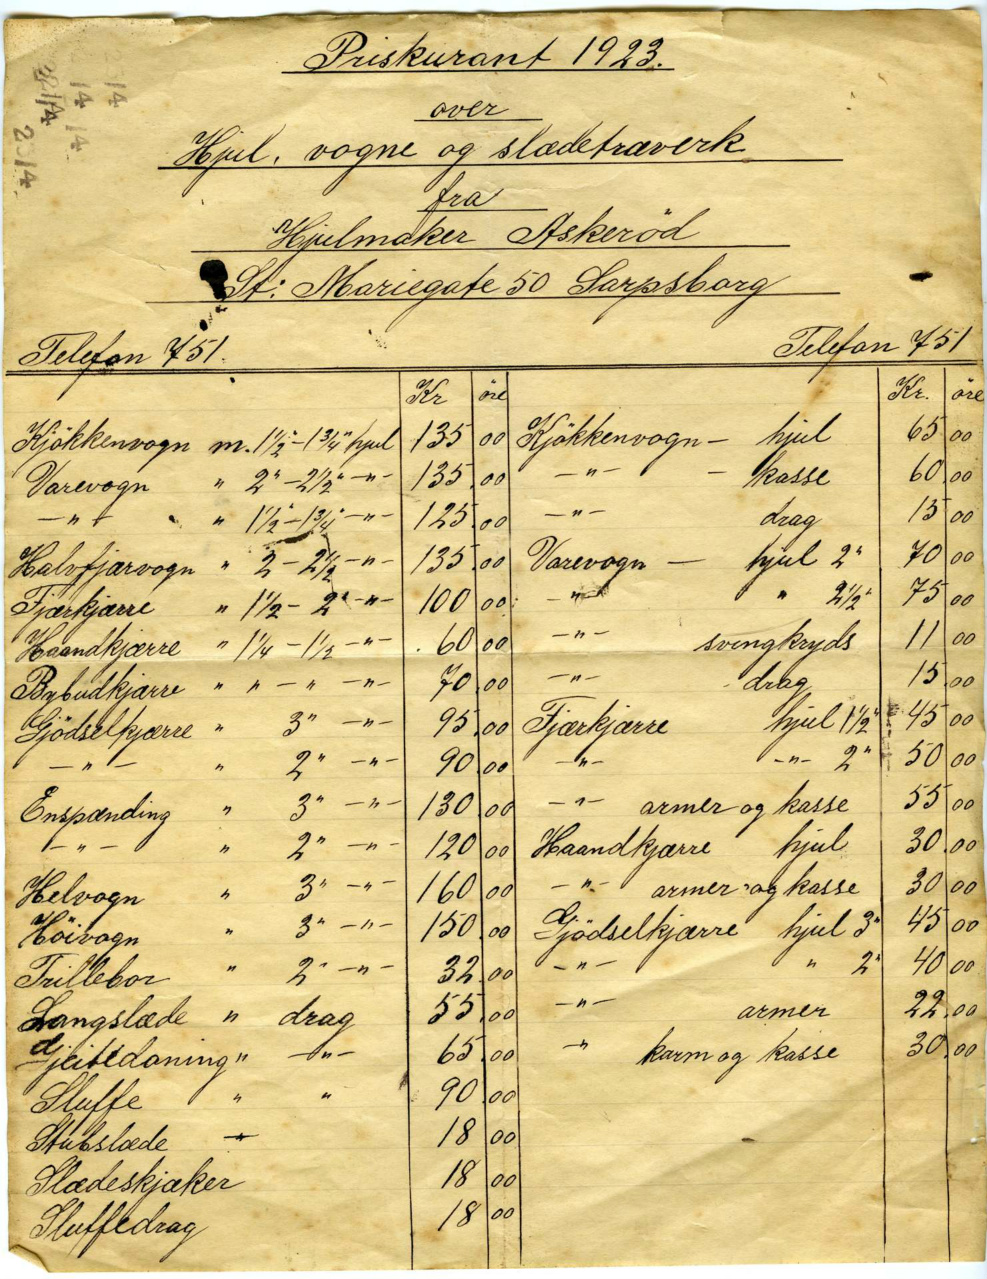 Priskurant 1923.
over
Hjul, vogne og slædetræverk
fra
Hjulmaker Askeröd
St: Mariegate 50 Sarpsborg
Telefon 751.
Telefon 751
Kr öre
Kjökkenvogn m. 1½" - 1¾" hjul 135.00
Varevogn " 2" - 2½" -"- 135.00
-"- " 1½" - 1¾" -"- 125.00
Halvfjærvogn " 2 - 2½ -"- 135.00
Fjærkjærre " 1½ - 2" -"- 100.00
Haandkjærre " 1¼ - 1½ -"- 60.00
Bybudkjærre " " - " -"- 70.00
Gjödselkjærre " 3" -"- 95.00
-"- " 2" -"- 90.00
Enspænding " 3" -"- 130.00
-"- " 2" -"- 120.00
Helvogn " 3" -"- 160.00
Höivogn " 3" -"- 150.00
Trillebor " 2" -"- 32.00
Langslæde " drag 55.00
" -"- 65.00
Sluffe " " 90.00
Stubslæde 18.00
Slædeskjæker 18.00
Sluffedrag 18.00
Kr. öre
Kjökkenvogn - hjul 65.00
-"- - kasse 60.00
-"- drag 15.00
Varevogn - hjul 2" 70.00
-"- " 2½" 75.00
-"- svingkryds 11.00
-"- drag 15.00
Fjærkjærre hjul 1½" 45.00
-"- -"- 2" 50.00
-"- armer og kasse 55.00
Haandkjærre hjul 30.00
-"- armer og kasse 30.00
Gjödselkjærre hjul 3" 45.00
-"- " 2" 40.00
-"- armer 22.00
-"- karm og kasse 30.00